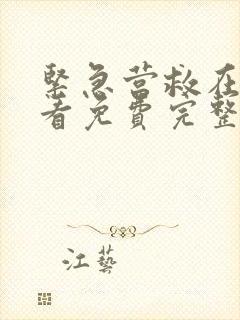 緊急营救在
看免費完整
江藝